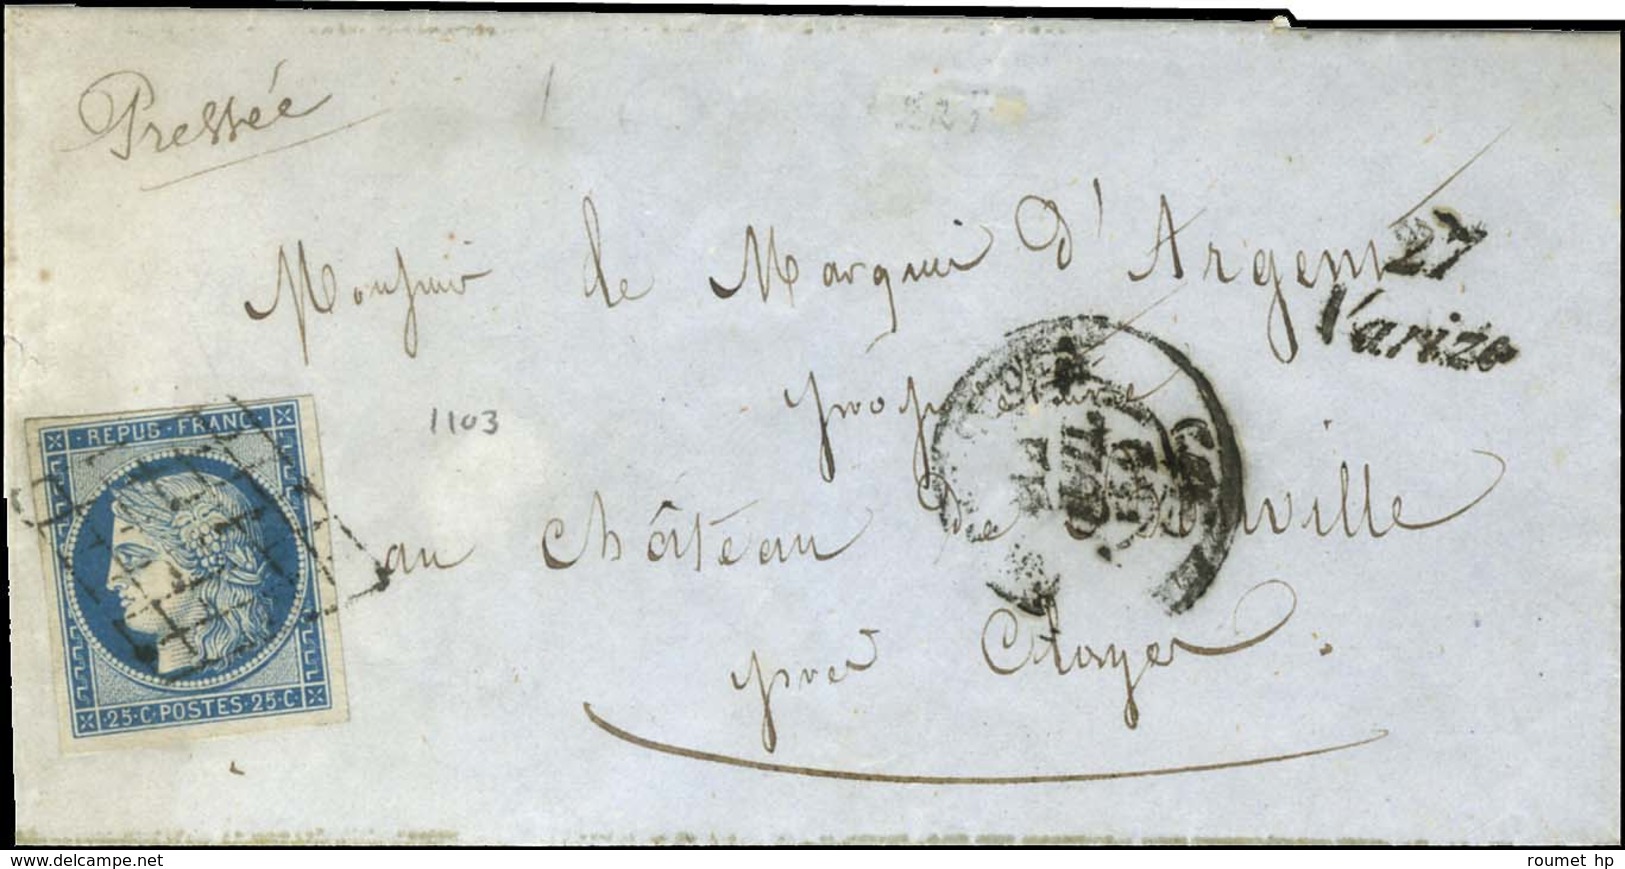 Pressée
Monsieur le Marquis d'Argent
27
Varize
1103
propriétaire
au Château de
ville
REPUB·FRANC·
25·C·POSTES·25·C·
près Cloyes.
www.delcampe.net
roumet hp